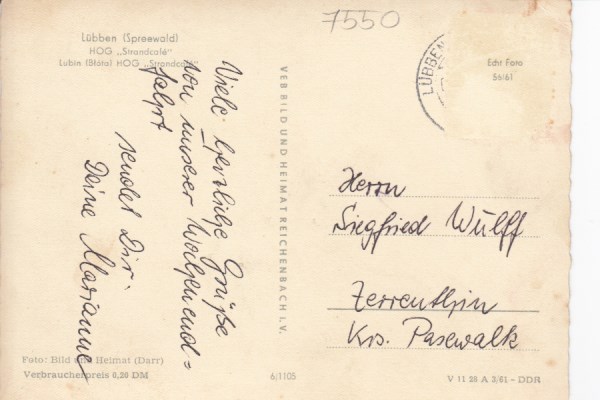 7550
Lübben (Spreewald)
HOG „Strandcafé"
Lubin (Błota) HOG „Strandcafé"
Viele herzliche Grüße
von unserer Wochenend=
fahrt
sendet Dir
Deine Marianne
VEB BILD UND HEIMAT REICHENBACH I.V.
LÜBBEN
Echt Foto
56/61
Herrn
Siegfried Wulff
Zerrenthin
Krs. Pasewalk
Foto: Bild und Heimat (Darr)
Verbraucherpreis 0,20 DM
6/1105
V 11 28 A 3/61 – DDR